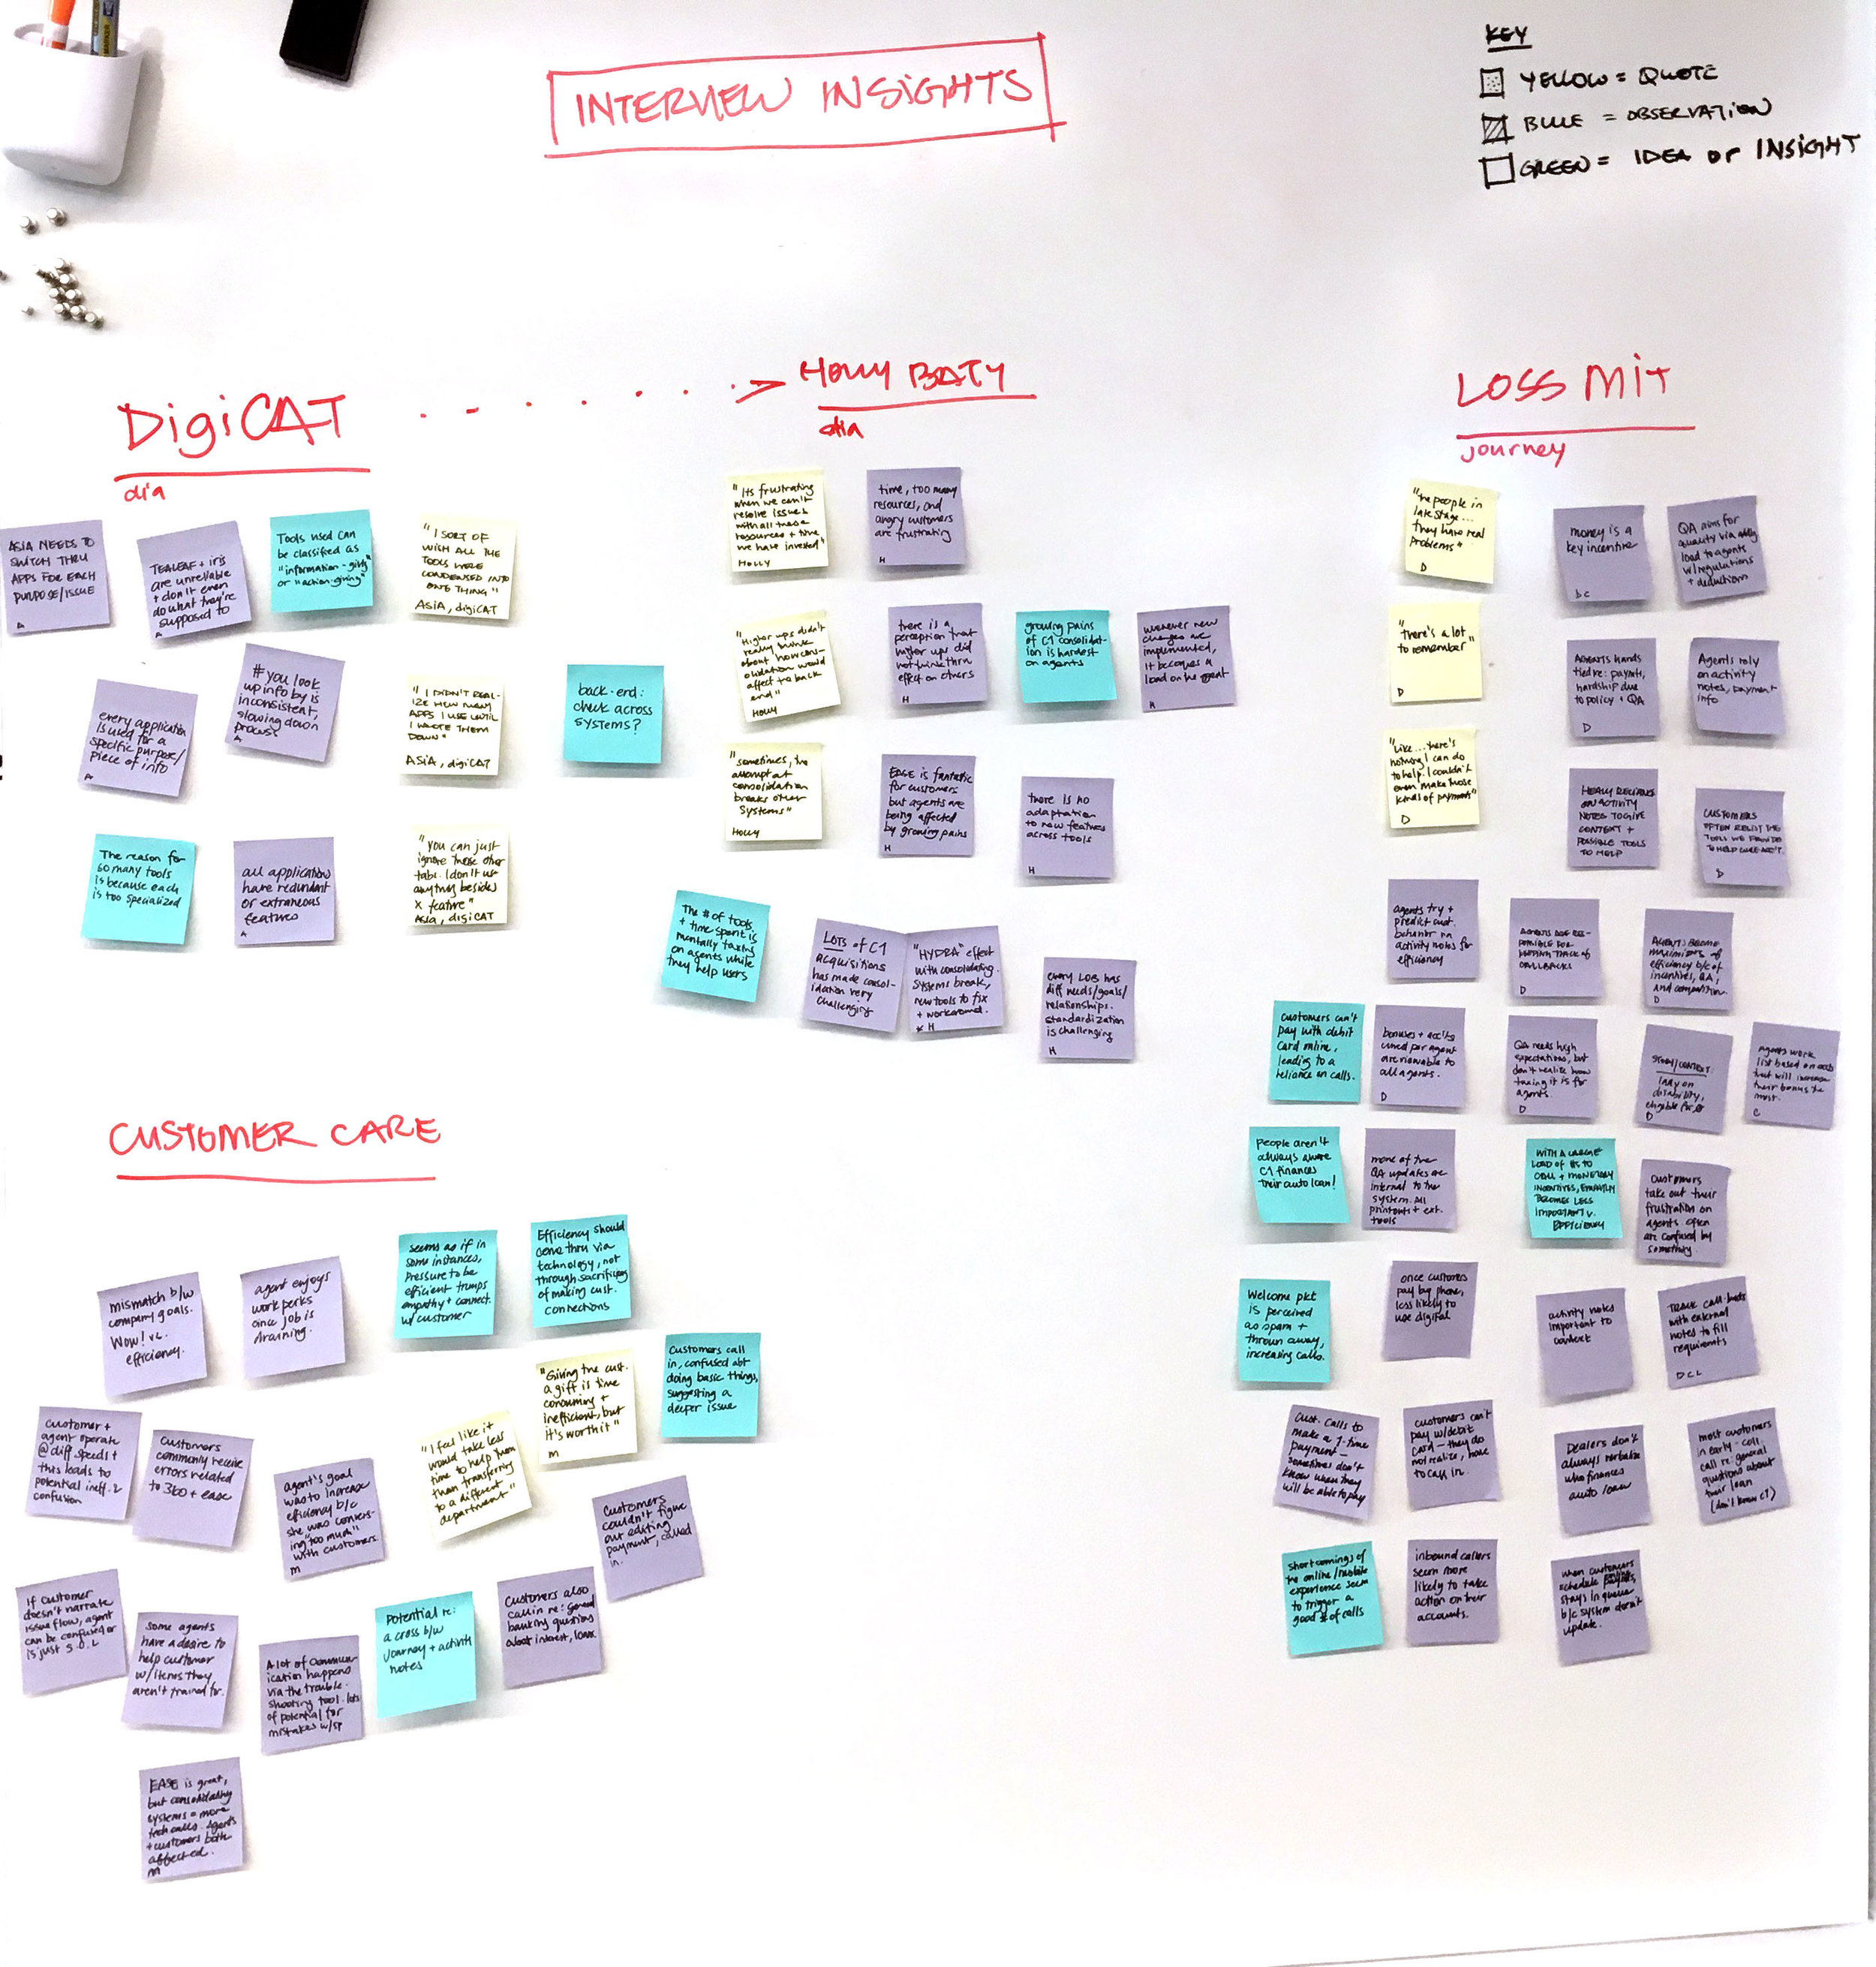 INTERVIEW INSIGHTS
KEY
YELLOW = QUOTE
BLUE = OBSERVATION
GREEN = IDEA or INSIGHT
DigiCAT
dia
ASIA NEEDS TO
SWITCH THRU
APPS FOR EACH
PURPOSE/ISSUE
A
TEALEAF + iris
are unreliable
+ don't even
do what they're
supposed to
A
Tools used can
be classified as
"information-giving"
or "action-giving"
"I SORT OF
WISH ALL THE
TOOLS WERE
CONDENSED INTO
ONE THING"
ASIA, digiCAT
every application
is used for a
specific purpose/
piece of info
A
# you look
up info by is
inconsistent,
slowing down
process
A
"I DIDN'T REAL-
IZE HOW MANY
APPS I USE UNTIL
I WROTE THEM
DOWN"
ASIA, digiCAT
back-end:
check across
systems?
The reason for
so many tools
is because each
is too specialized
all applications
have redundant
or extraneous
features
A
"you can just
ignore those other
tabs. I don't use
anything besides
X feature"
Asia, digiCAT
HOLLY BATY
dia
"Its frustrating
when we can't
resolve issues
with all these
resources + time
we have invested"
HOLLY
time, too many
resources, and
angry customers
are frustrating
H
"Higher ups didn't
really think
about how cons-
olidation would
affect the back
end"
HOLLY
there is a
perception that
higher ups did
not think thru
effect on others
H
growing pains
of C1 consolidat-
ion is hardest
on agents
whenever new
changes are
implemented,
it becomes a
load on the agent
H
"sometimes, the
attempt at
consolidation
breaks other
systems"
Holly
EASE is fantastic
for customers
but agents are
being affected
by growing pains
H
there is no
adaptation
to new features
across tools
H
The # of tools
+ time spent is
mentally taxing
on agents while
they help users
LOTS of C1
acquisitions
has made consol-
idation very
challenging
"HYDRA" effect
with consolidating.
Systems break,
new tools to fix
+ workaround.
* H
every LOB has
diff needs/goals/
relationships.
standardization
is challenging
H
LOSS MIT
journey
"the people in
late stage...
they have real
problems"
D
money is a
key incentive
QA aims for
quality via adding
load to agents
w/regulations
+ deductions
"there's a lot
to remember"
D
Agents hands
tied re: payments,
hardship due
to policy + QA
D
Agents rely
on activity
notes, payment
info
"Like...there's
nothing I can do
to help. I couldn't
even make those
kinds of payment"
D
HEAVY RELIANCE
ON ACTIVITY
NOTES TO GIVE
CONTEXT +
POSSIBLE TOOLS
TO HELP
CUSTOMERS
OFTEN RESIST THE
TOOLS WE PROVIDE
TO HELP
D
agents try +
predict cust.
behavior on
activity notes for
efficiency
AGENTS ARE RES-
PONSIBLE FOR
KEEPING TRACK OF
CALLBACKS
D
AGENTS BECOME
MAXIMIZERS of
efficiency b/c of
incentives, QA,
and competition.
D
customers can't
pay with debit
card online,
leading to a
reliance on calls.
bonuses + accts
cured per agent
are viewable to
all agents.
D
QA needs high
expectations, but
don't realize how
taxing it is for
agents.
D
STORY/CONTEXT
lady on
disability,
eligible for
D
Agents work
list based on accts
that will increase
their bonus the
most.
C
people aren't
always aware
C1 finances
their auto loan!
none of the
QA updates are
internal to the
system. All
printouts + ext.
tools
WITH A LARGE
LOAD OF #S TO
CALL + MONETARY
INCENTIVES, EMPATHY
BECOMES LESS
IMPORTANT V.
EFFICIENCY
customers
take out their
frustration on
agents often
are confused by
something.
Welcome pkt
is perceived
as spam +
thrown away,
increasing calls.
once customers
pay by phone,
less likely to
use digital
activity notes
important to
context
TRACK call-backs
with external
notes to fill
requirements
DCL
Cust. calls to
make a 1-time
payment -
sometimes don't
know when they
will be able to pay
customers can't
pay w/debit
card - they do
not realize, have
to call in.
Dealers don't
always verbalize
who finances
auto loan
most customers
in early-coll.
call re: general
questions about
their loan
(don't know C1)
shortcomings of
the online/mobile
experience seem
to trigger a
good # of calls
inbound callers
seem more
likely to take
action on their
accounts.
when customers
schedule payments,
stays in queue
b/c system doesn't
update.
CUSTOMER CARE
mismatch b/w
company goals.
Wow! vs.
efficiency.
agent enjoys
work perks
since job is
draining.
seems as if in
some instances,
pressure to be
efficient trumps
empathy + connect.
w/ customer
Efficiency should
come thru via
technology, not
through sacrificing
of making cust.
connections
"Giving the cust.
a gift is time
consuming +
inefficient, but
it's worth it"
m
Customers call
in, confused abt
doing basic things,
suggesting a
deeper issue
customer +
agent operate
@ diff. speeds +
this leads to
potential ineff. &
confusion
customers
commonly receive
errors related
to 360 + ease
agent's goal
was to increase
efficiency b/c
she was convers-
ing "too much"
with customers.
m
"I feel like it
would take less
time to help them
than transferring
to a different
department"
Customers
couldn't figure
out editing
payment, called
in.
If customer
doesn't narrate
issue flow, agent
can be confused or
is just S.O.L
some agents
have a desire to
help customer
w/items they
aren't trained for.
A lot of commun-
ication happens
via the trouble-
shooting tool. lots
of potential for
mistakes w/
Potential re:
a cross b/w
Journey + activity
notes
Customers also
call in re: general
banking questions
about interest, loans.
EASE is great,
but consolidating
systems = more
tech calls. Agents
+ customers both
affected.
m